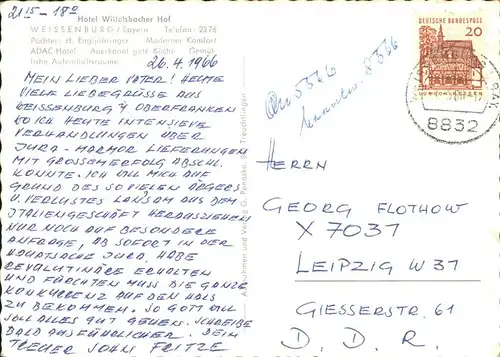 21 15 - 18 0
Hotel Wittelsbacher Hof
WEISSENBURG / Bayern Telefon: 2376
Pächter: H. Engljähringer Moderner Komfort
ADAC-Hotel Anerkannt gute Küche Gemüt-
liche Aufenthaltsräume
26.4.1966
MEIN LIEBER VATER! HEUTE
VIELE LIEBE GRÜSSE AUS
WEISSENBURG / OBERFRANKEN
WO ICH HEUTE INTENSIEVE
VERHANDLUNGEN ÜBER
JURA-MARMOR LIEFERUNGEN
MIT GROSSEM ERFOLG ABSCHL.
KONNTE. ICH WILL MICH AUF
GRUND DES SO VIELEN ÄRGERS
U. VERLUSTES LANGSAM AUS DEM
ITALIENGESCHÄFT HERAUSZIEHEN
NUR NOCH AUF BESONDERE
ANFRAGE, AB SOFORT IN DER
HAUPTSACHE JURA. HABE
REVOLUTINÄRE ERHALTEN
UND FÜRCHTEN MUSS DIE GANZE
KONKURRENZ AUF DEN HALS
ZU BEKOMMEN. SO GOTT WILL
SOLL ALLES GUT GEHEN. SCHREIBE
BALD AUSFÜHRLICHER. DEIN
TREUER SOHN FRITZE
Aufnahmen und Verlag G. Treuchtlingen
DEUTSCHE BUNDESPOST
20
8832
5566
HERRN
GEORG FLOTHOW
X 7031
LEIPZIG W 31
GIESSERSTR. 61
D. D. R.